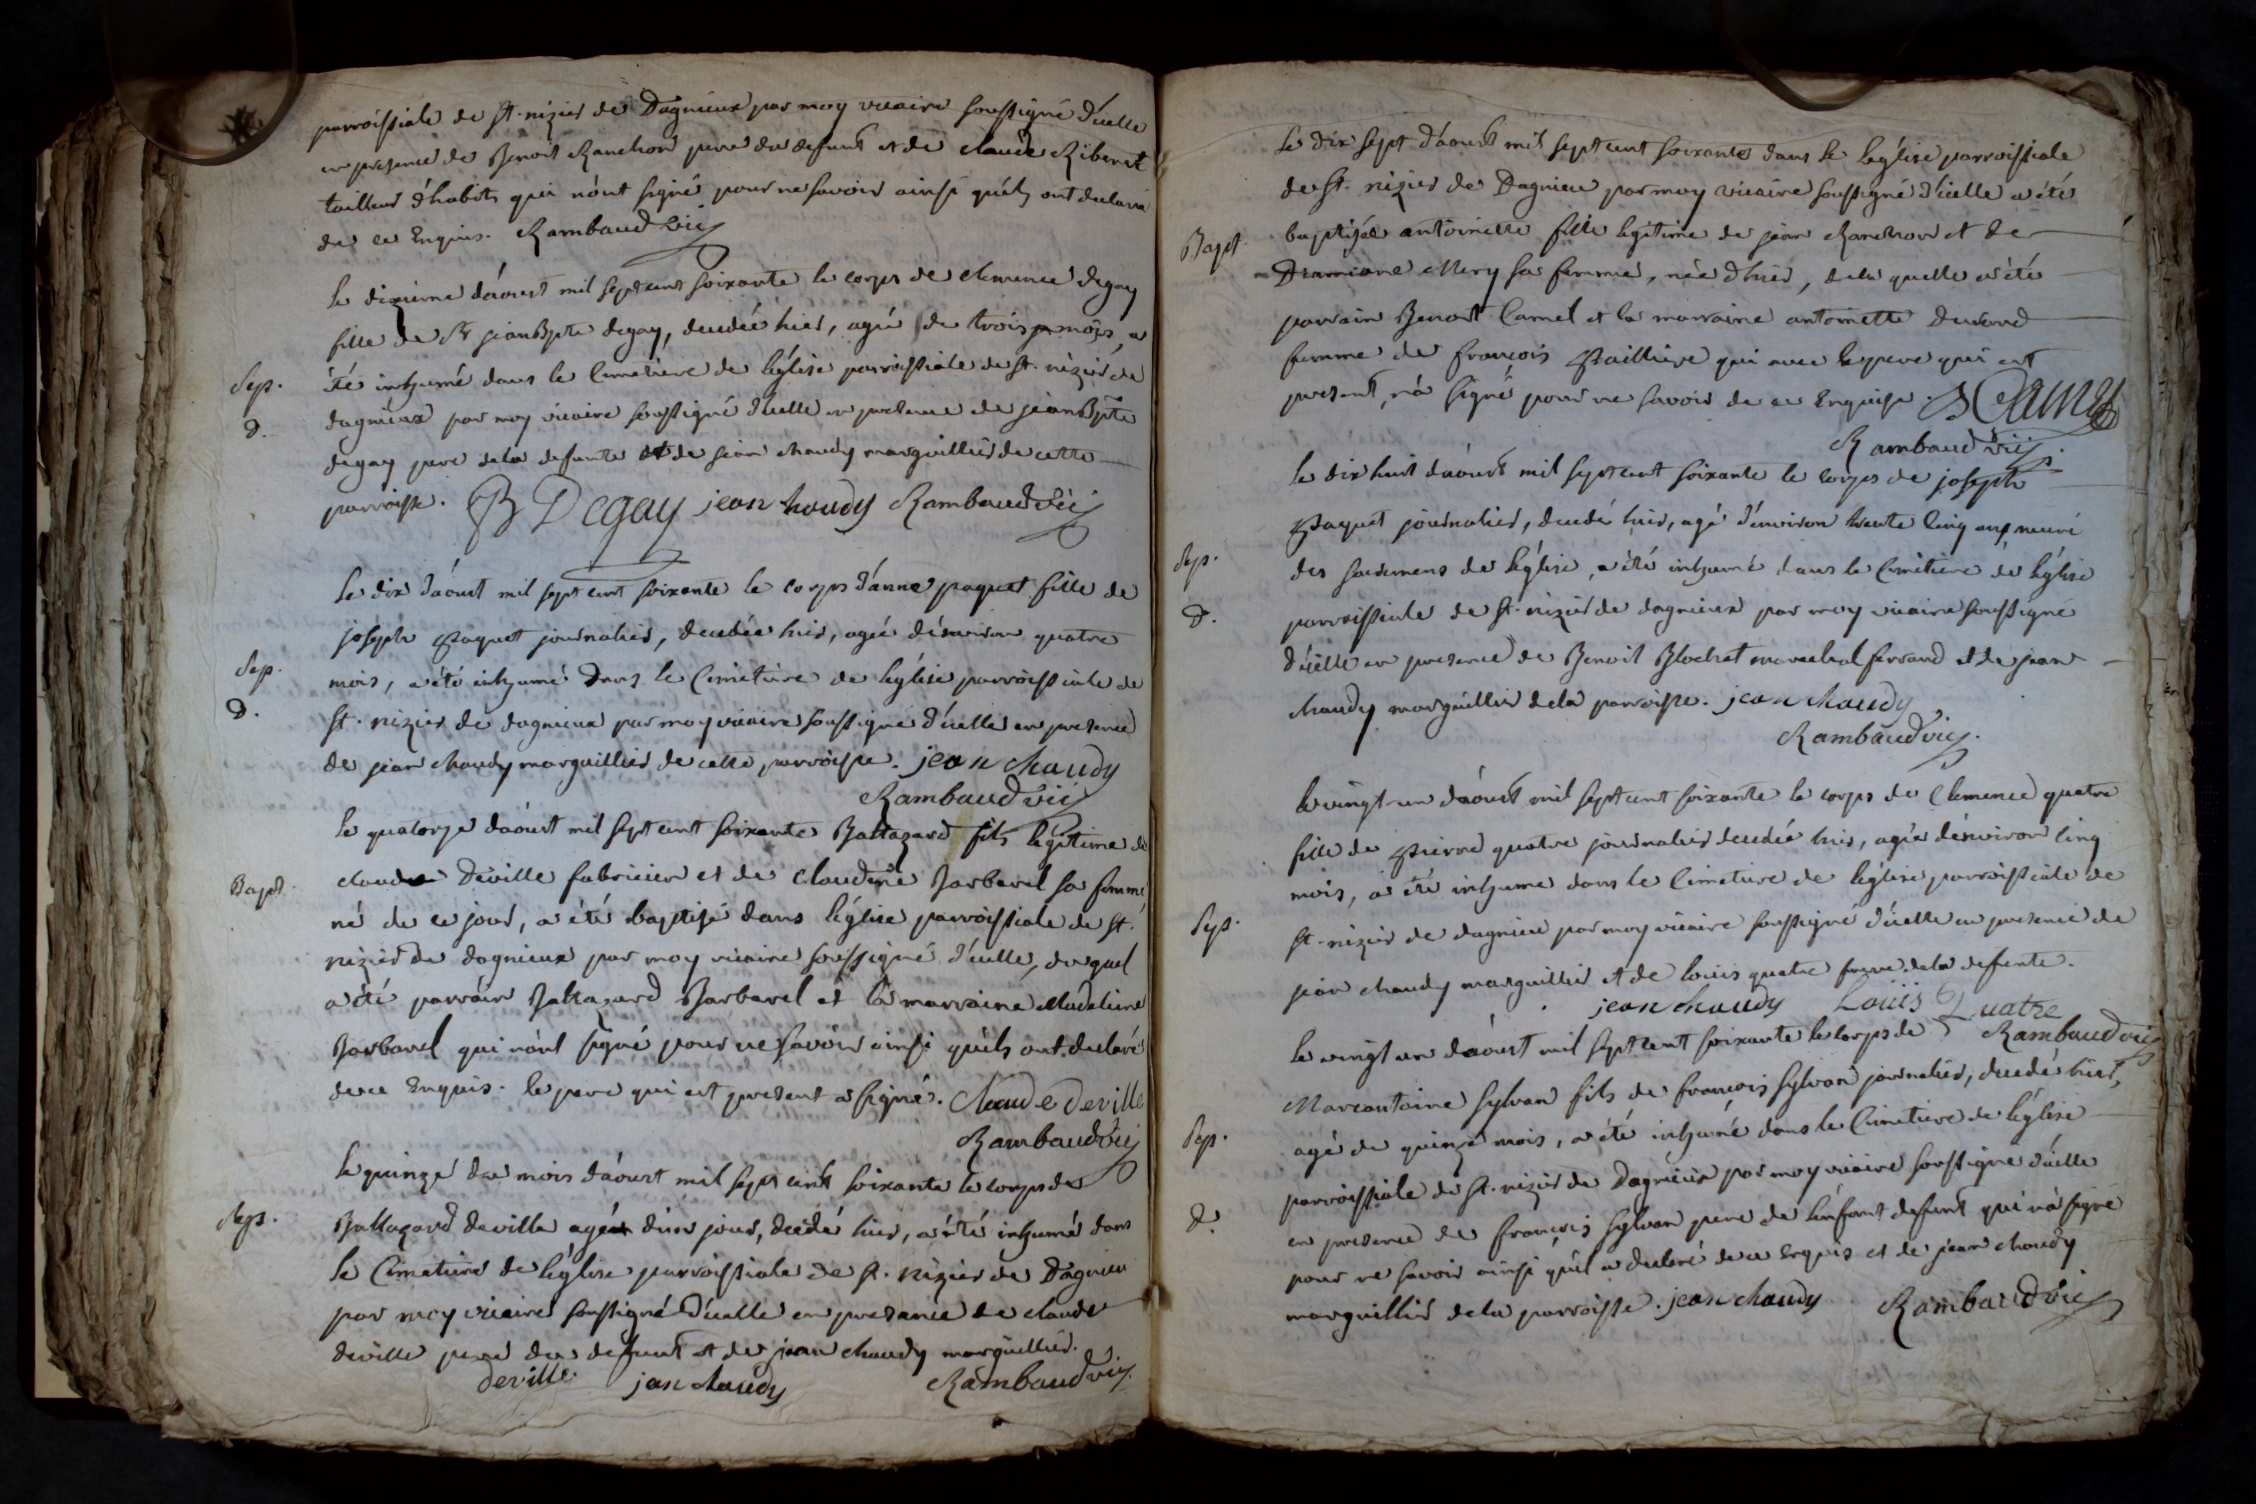 parroissiale de St. nizier de Dagnieux par moy vicaire soussigné d'icelle
en presence de Benoit Ranchon pere du defunt et de claude Riberet
tailleur d'habits qui n'ont signé pour ne savoir ainsi qu'ils ont declaré
de ce Enquis. Rambaud vic
le dixieme d'aoust mil sept cent soixante le corps de clemence degay
fille de Sr jean Bpte degay, decedée hier, agée de trois mois, a
Sep. été inhumé dans le Cimetiere de l'église parroissiale de St. nizier de
d. dagnieux par moy vicaire soussigné d'icelle en presence de jean Bpte
degay pere de la defunte et de jean chaudy marguillier de cette
parroisse. JB Degay jean chaudy Rambaud vic
Le dix d'aoust mil sept cent soixante le corps d'anne paquet fille de
joseph Paquet journalier, decedée hier, agée d'environ quatre
Sep. mois, a été inhumé Dans le Cimetiere de l'église parroissiale de
d. St. nizier de dagnieux par moy vicaire soussigné d'icelle en presence
de jean chaudy marguillier de cette parroisse. jean chaudy
Rambaud vic
le quatorze d'aoust mil sept cent soixante Baltazard fils légitime de
Bapt. claude Deville fabricien et de claudine Barbarel sa femme,
né de ce jour, a été baptisé dans l'église parroissiale de St.
nizier de dagnieux par moy vicaire soussigné d'icelle, duquel
a été parrain Baltazard Barbarel et la marraine Madeleine
Barbarel qui n'ont signé pour ne savoir ainsi qu'ils ont declaré
de ce Enquis. le pere qui est present a signé. Claude deville
Rambaud vic
le quinze du mois d'aoust mil sept cent soixante le corps de
Sep. Baltazard deville agé d'un jour, decédé hier, a été inhumé dans
le Cimetiere de l'église parroissiale de St. nizier de Dagnieu
par moy vicaire soussigné d'icelle en presence de claude
deville pere du defunt et de jean chaudy marguillier.
deville jean chaudy Rambaud vic
Le dix sept d'aoust mil sept cent soixante dans le l'église parroissiale
de St. nizier de Dagnieu par moy vicaire soussigné d'icelle a été
Bapt. baptisée antoinette fille légitime de jean Ranchon et de
Mery sa femme, née d'hier, de la quelle a été
parrain Benoit Camel et la marraine antoinette
femme de françois qui avec le pere qui est
present, n'a signé pour ne savoir de ce Enquise. B Camel
Rambaud vic
le dix huit d'aoust mil sept cent soixante le corps de joseph
Paquet journalier, decedé hier, agé d'environ trente cinq ans, muni
Sep. des sacremens de l'église, a été inhumé dans le Cimetiere de l'église
d. parroissiale de St. nizier de dagnieux par moy vicaire soussigné
d'icelle en presence de Benoit Blochet marechal ferrand et de jean
chaudy marguillier de la parroisse. jean chaudy
Rambaud vic.
le vingt un d'aoust mil sept cent soixante le corps de Clemence quatre
fille de Pierre quatre journalier decedée hier, agée d'environ cinq
mois, a été inhumé dans le Cimetiere de l'église parroissiale de
Sep. St. nizier de dagnieu par moy vicaire soussigné d'icelle en presence de
jean chaudy marguillier et de louis quatre frere de la defunte.
jean chaudy Louis Quatre
le vingt un d'aoust mil sept cent soixante le corps de Rambaud vic
Marcantoine sylvan fils de françois sylvan journalier, decedé hier,
Sep. agé de quinze mois, a été inhumé dans le Cimetiere de l'église
parroissiale de St. nizier de Dagnieux par moy vicaire soussigné d'icelle
d. en presence de françois sylvan pere de l'enfant defunt qui n'a signé
pour ne savoir ainsi qu'il a declaré de ce Enquis et de jean chaudy
marguillier de la parroisse. jean chaudy Rambaud vic